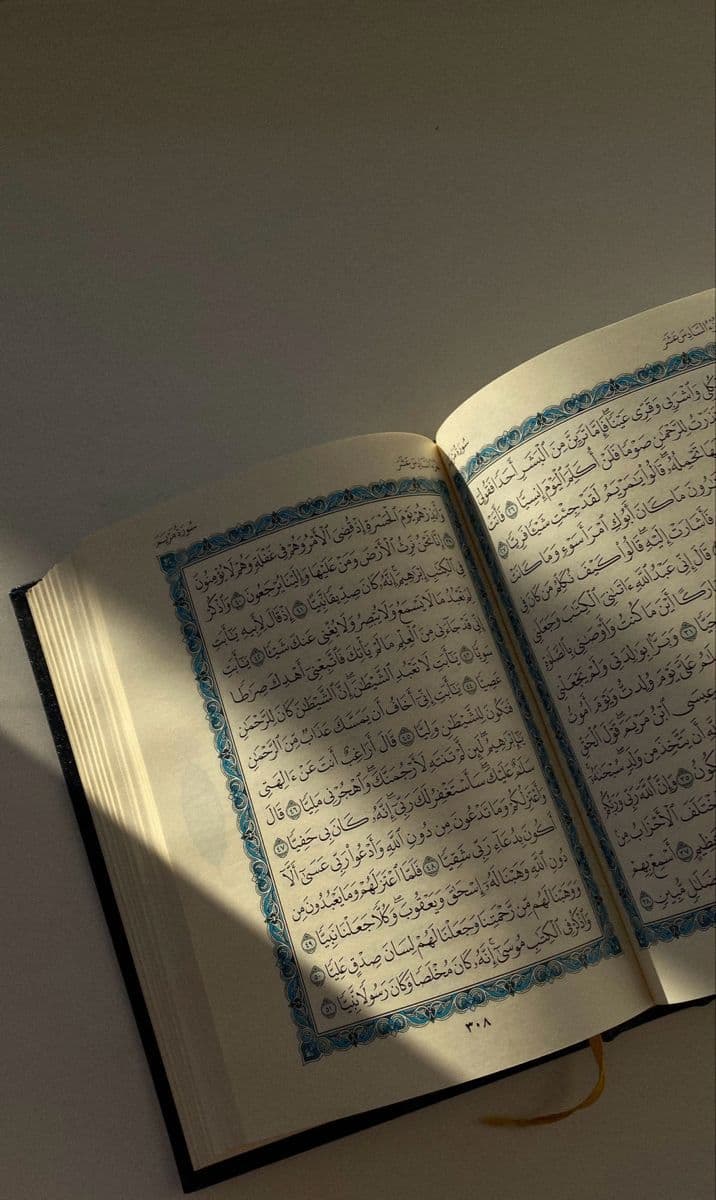 كُلِي وَٱشۡرَبِي وَقَرِّي عَيۡنٗاۖ فَإِمَّا تَرَيِنَّ مِنَ ٱلۡبَشَرِ أَحَدٗا فَقُولِيٓ
لِلرَّحۡمَٰنِ صَوۡمٗا فَلَنۡ أُكَلِّمَ ٱلۡيَوۡمَ إِنسِيّٗا ٢٦ فَأَتَتۡ
تَحۡمِلُهُۥۖ قَالُواْ يَٰمَرۡيَمُ لَقَدۡ جِئۡتِ شَيۡـٔٗا فَرِيّٗا ٢٧
مَا كَانَ أَبُوكِ ٱمۡرَأَ سَوۡءٖ وَمَا كَانَتۡ
فَأَشَارَتۡ إِلَيۡهِۖ قَالُواْ كَيۡفَ نُكَلِّمُ مَن كَانَ فِي
قَالَ إِنِّي عَبۡدُ ٱللَّهِ ءَاتَىٰنِيَ ٱلۡكِتَٰبَ وَجَعَلَنِي
أَيۡنَ مَا كُنتُ وَأَوۡصَٰنِي بِٱلصَّلَوٰةِ
حَيّٗا ٣١ وَبَرَّۢا بِوَٰلِدَتِي وَلَمۡ يَجۡعَلۡنِي
عَلَيَّ يَوۡمَ وُلِدتُّ وَيَوۡمَ أَمُوتُ
عِيسَى ٱبۡنُ مَرۡيَمَۖ قَوۡلَ ٱلۡحَقِّ
أَن يَتَّخِذَ مِن وَلَدٖۖ سُبۡحَٰنَهُۥٓ
٣٥ وَإِنَّ ٱللَّهَ رَبِّي وَرَبُّكُمۡ
ٱلۡأَحۡزَابُ مِنۢ
٣٧ أَسۡمِعۡ بِهِمۡ
ضَلَٰلٖ مُّبِينٖ ٣٨
سُورَةُ مَرۡيَمَ
وَأَنذِرۡهُمۡ يَوۡمَ ٱلۡحَسۡرَةِ إِذۡ قُضِيَ ٱلۡأَمۡرُ وَهُمۡ فِي غَفۡلَةٖ وَهُمۡ لَا يُؤۡمِنُونَ
٣٩ إِنَّا نَحۡنُ نَرِثُ ٱلۡأَرۡضَ وَمَنۡ عَلَيۡهَا وَإِلَيۡنَا يُرۡجَعُونَ ٤٠ وَٱذۡكُرۡ
فِي ٱلۡكِتَٰبِ إِبۡرَٰهِيمَۚ إِنَّهُۥ كَانَ صِدِّيقٗا نَّبِيًّا ٤١ إِذۡ قَالَ لِأَبِيهِ يَٰٓأَبَتِ
لِمَ تَعۡبُدُ مَا لَا يَسۡمَعُ وَلَا يُبۡصِرُ وَلَا يُغۡنِي عَنكَ شَيۡـٔٗا ٤٢ يَٰٓأَبَتِ
إِنِّي قَدۡ جَآءَنِي مِنَ ٱلۡعِلۡمِ مَا لَمۡ يَأۡتِكَ فَٱتَّبِعۡنِيٓ أَهۡدِكَ صِرَٰطٗا
سَوِيّٗا ٤٣ يَٰٓأَبَتِ لَا تَعۡبُدِ ٱلشَّيۡطَٰنَۖ إِنَّ ٱلشَّيۡطَٰنَ كَانَ لِلرَّحۡمَٰنِ
عَصِيّٗا ٤٤ يَٰٓأَبَتِ إِنِّيٓ أَخَافُ أَن يَمَسَّكَ عَذَابٞ مِّنَ ٱلرَّحۡمَٰنِ
فَتَكُونَ لِلشَّيۡطَٰنِ وَلِيّٗا ٤٥ قَالَ أَرَاغِبٌ أَنتَ عَنۡ ءَالِهَتِي
يَٰٓإِبۡرَٰهِيمُۖ لَئِن لَّمۡ تَنتَهِ لَأَرۡجُمَنَّكَۖ وَٱهۡجُرۡنِي مَلِيّٗا ٤٦ قَالَ
سَلَٰمٌ عَلَيۡكَۖ سَأَسۡتَغۡفِرُ لَكَ رَبِّيٓۖ إِنَّهُۥ كَانَ بِي حَفِيّٗا ٤٧
وَأَعۡتَزِلُكُمۡ وَمَا تَدۡعُونَ مِن دُونِ ٱللَّهِ وَأَدۡعُواْ رَبِّي عَسَىٰٓ أَلَّآ
أَكُونَ بِدُعَآءِ رَبِّي شَقِيّٗا ٤٨ فَلَمَّا ٱعۡتَزَلَهُمۡ وَمَا يَعۡبُدُونَ مِن
دُونِ ٱللَّهِ وَهَبۡنَا لَهُۥٓ إِسۡحَٰقَ وَيَعۡقُوبَۖ وَكُلّٗا جَعَلۡنَا نَبِيّٗا ٤٩
وَوَهَبۡنَا لَهُم مِّن رَّحۡمَتِنَا وَجَعَلۡنَا لَهُمۡ لِسَانَ صِدۡقٍ عَلِيّٗا ٥٠
وَٱذۡكُرۡ فِي ٱلۡكِتَٰبِ مُوسَىٰٓۚ إِنَّهُۥ كَانَ مُخۡلَصٗا وَكَانَ رَسُولٗا نَّبِيّٗا ٥١
٣٠٨